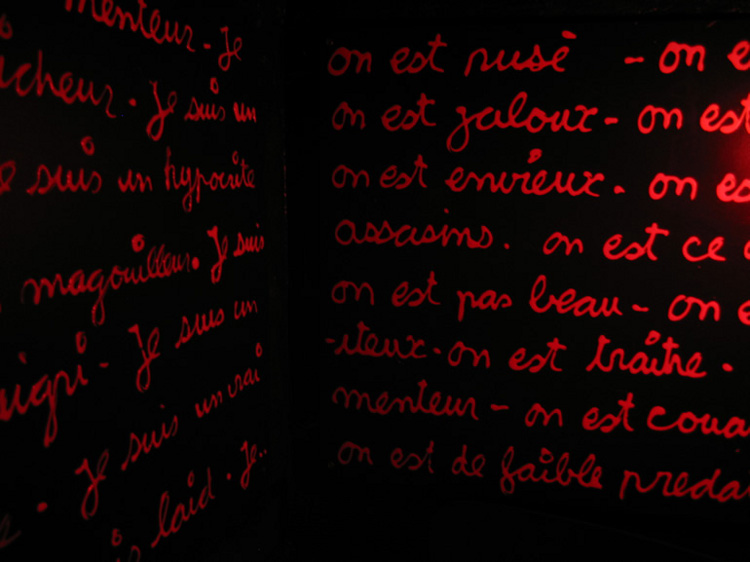 menteur. Je
cheur. Je suis un
suis un hypocrite
magouilleur. Je suis
aigri - Je suis un
. Je suis un vrai
is laid. Je..
on est rusé - on e
on est jaloux - on est
on est envieux. on es
assasins. on est ce
on est pas beau - on e
-iteux. on est traître.
menteur - on est coua
on est de faible preda